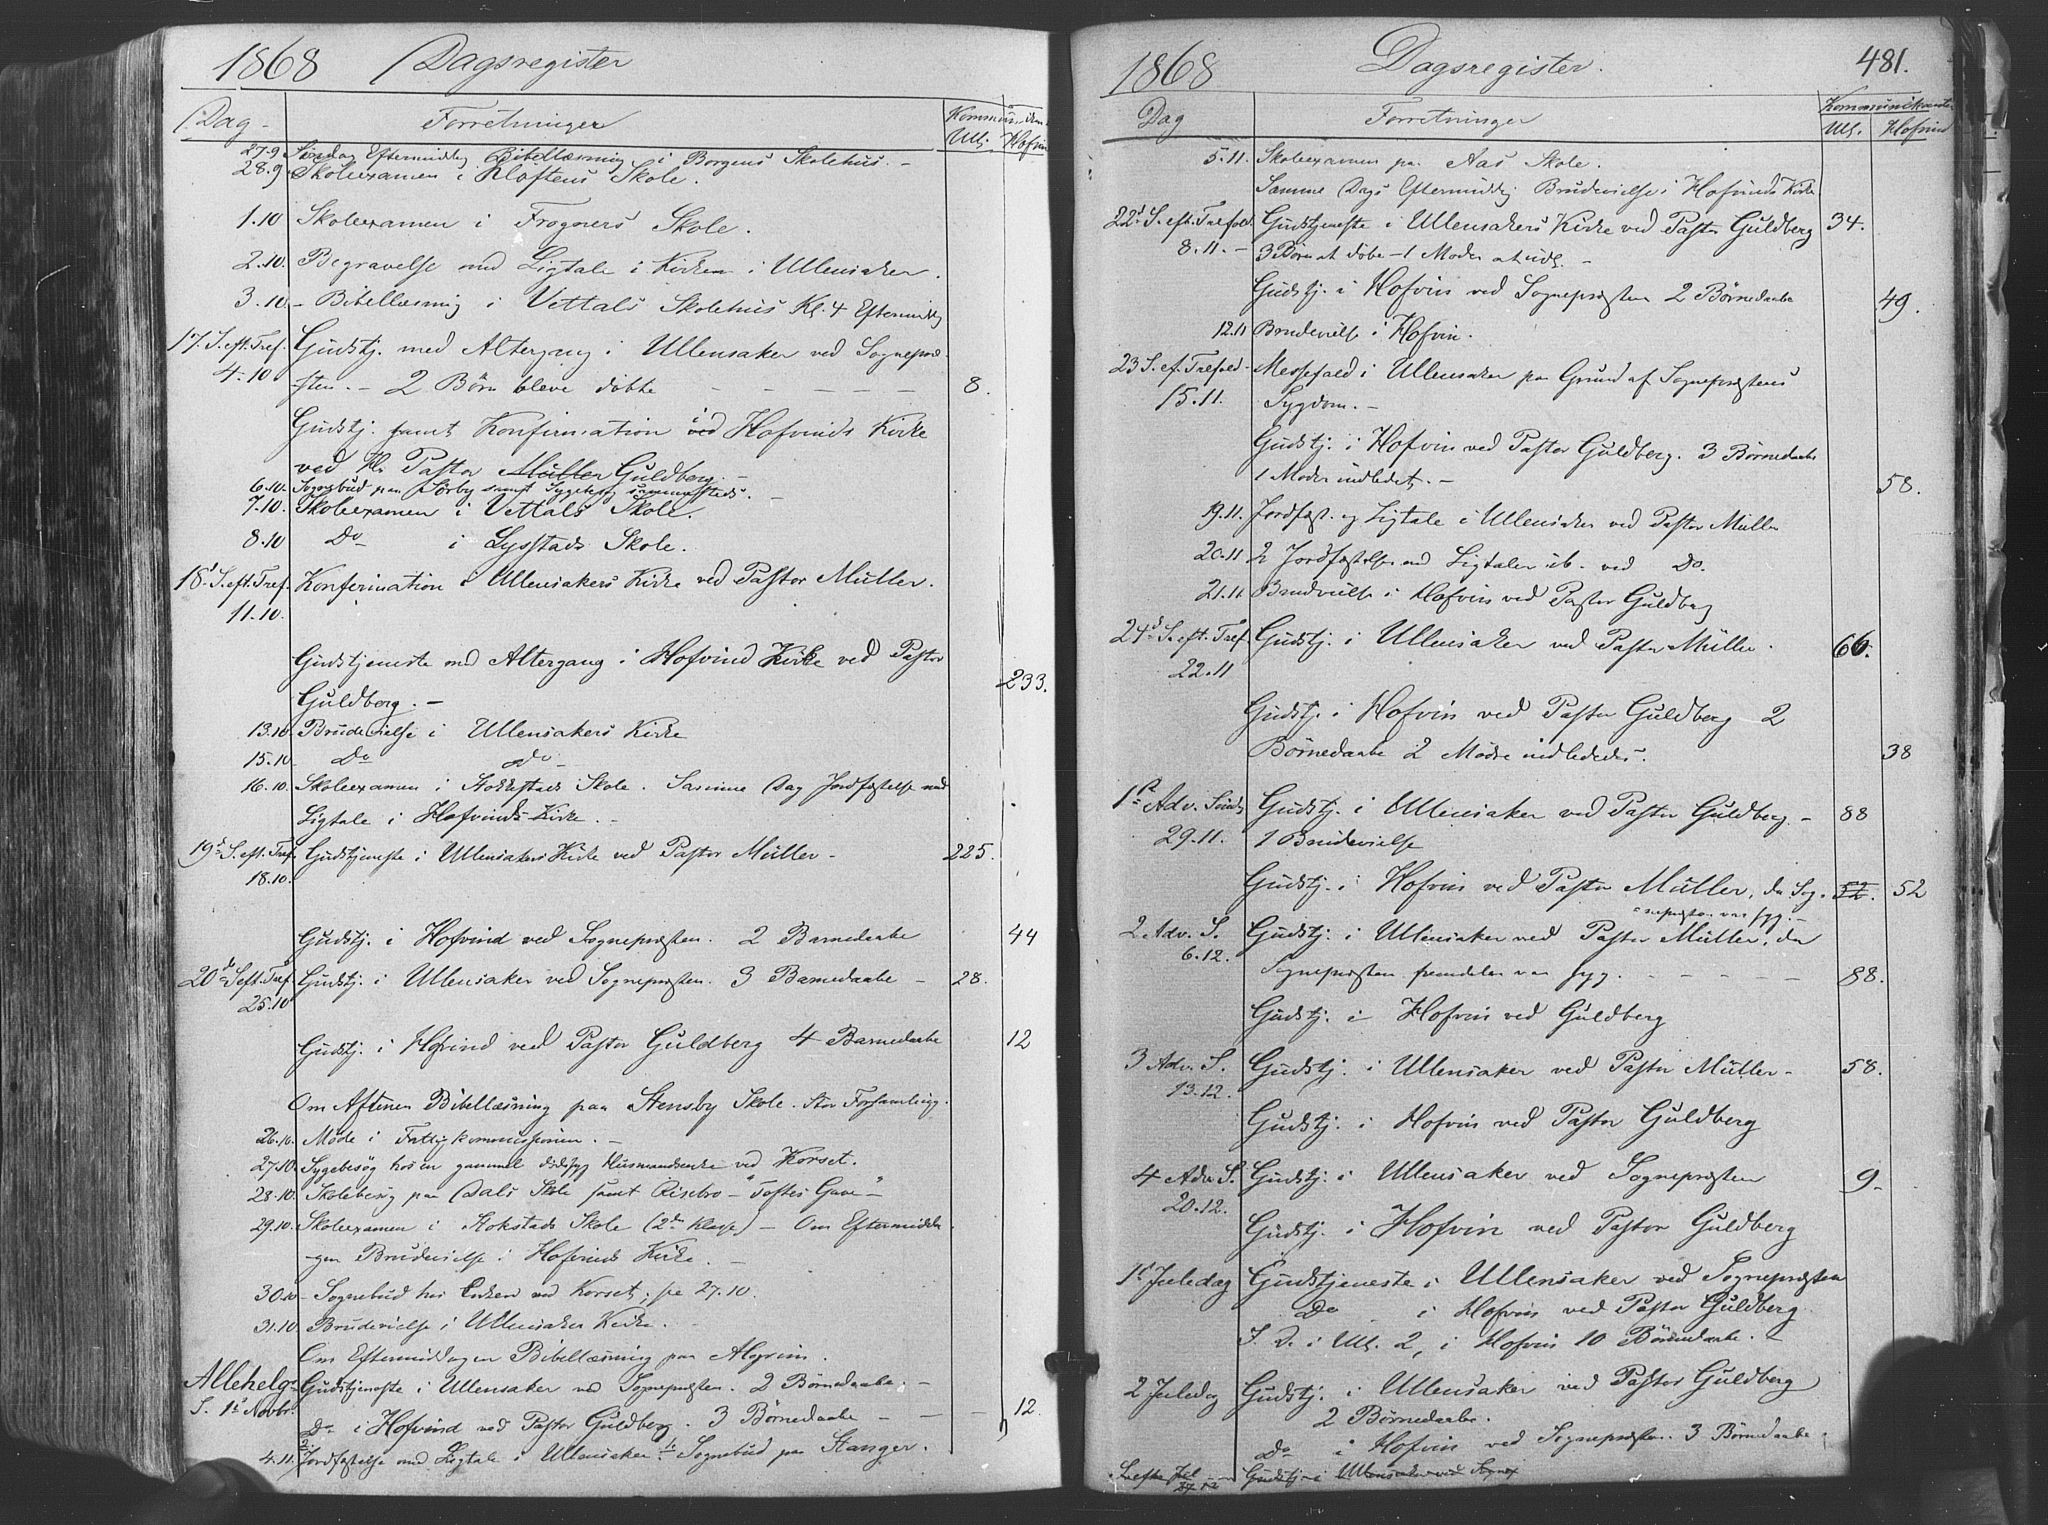 1868 Dagsregister
Dag - Forretninger Kommuni
Ull. Hofvin
27.9 Søndag Eftermiddag Bibellæsning i Borgens Skolehus. -
28.9 Skoleexamen i Kløftens Skole.
1.10 Skoleexamen i Frogners Skole.
2.10. Begravelse med Ligtale i Kirken i Ullensaker.
3.10. - Bibellæsning i Vettals Skolehus Kl. 4 Eftermiddg
17. S. eft. Tref. Gudstj. med Altergang i Ullensaker ved Sognepræ-
4.10 sten. - 2 Børn bleve døbte - - - - - 8.
Gudstj. samt Konfirmation i Hofvinds Kirke
ved Hr Pastor Müller Guldberg. -
6.10. Sognebud paa Sørby samt Sygebesøg sammesteds. -
7.10. Skoleexamen i Vettals Skole.
8.10 Do i Lystads Skole.
18. S. eft. Tref. Konfirmation i Ullensakers Kirke ved Pastor Müller.
11.10.
Gudstjeneste med Altergang i Hofvind Kirke ved Pastor
233.
Guldberg. -
13.10. Brudevielse i Ullensakers Kirke
15.10 Do do -
16.10. Skoleexamen i Stokkestads Skole. Samme Dag Jordfæstelse med
Ligtale i Hofvinds Kirke. -
19d S. eft. Tref. Gudstjeneste i Ullensakers Kirke ved Pastor Müller - 225.
18.10.
Gudstj. i Hofvind ved Sognepræsten. 2 Barnedaabe 44
20d S eft. Tref. Gudstj. i Ullensaker ved Sognepræsten. 3 Barnedaabe - 28.
25.10
Gudstj. i Hofvind ved Pastor Guldberg 4 Barnedaabe 12
Om Aftenen Bibellæsning paa Stensby Skole. Stor Forsamling.
26.10. Møde i Fattigkommissionen. -
27.10. Sygebesøg hos en gammel Husmandsenke ved Korset.
28.10. Skolebesøg paa Dals Skole samt Risebro - "Toftes Gave" -
29.10. Skoleexamen i Stokstads Skole (2den Klasse) - Om Eftermidda-
gen Brudevielse i Hofvinds Kirke. -
30.10 - Sognebud hos Enken ved Korset, se 27.10.
31.10. Brudevielse i Ullensaker Kirke. -
Om Eftermiddagen Bibellæsning paa Algrim.
Allehelg. Gudstjeneste i Ullensaker ved Sognepræsten. 2 Børnedaabe. -
S. 1st Novbr. Do i Hofvind ved Pastor Guldberg. 3 Børnedaabe - - - 12.
4.11. Jordfæstelse med Ligtale i Ullensaker. Sognebud paa Stanger.
1868 Dagsregister. 481.
Dag Forretninger Kommunikanter
Ull. Hofvind
5.11. Skoleexamen paa Aas Skole.
Samme Dags Eftermiddg Brudevielse i Hofvinds Kirke
22d S. eft. Trefold. Gudstjeneste i Ullensakers Kirke ved Pastor Guldberg 34.
8.11. - 3 Børn at døbe - 1 Moder at indl. -
Gudstj. i Hofvin ved Sognepræsten 2 Børnedaabe
49.
12.11 Brudevielse i Hofvin.
23 S. ef. Trefold - Messefald i Ullensaker paa Grund af Sognepræstens
15.11. Sygdom. -
Gudstj. i Hofvin ved Pastor Guldberg. 3 Børnedaabe
1 Moder indledet. - 58.
19.11. Jordfæst. og Ligtale i Ullensaker ved Pastor Müller
20.11 2 Jordfæstelser med Ligtaler ib. ved Do.
21.11 Brudevielse i Hofvin ved Pastor Guldberg
24d S. eft. Tref. Gudstj. i Ullensaker ved Pastor Müller. 66.
22.11
Gudstj. i Hofvin ved Pastor Guldberg 2
Børnedaabe 2 Mødre indlededes. 38
1st Adv. Søndg Gudstj. i Ullensaker ved Pastor Guldberg. - 88
29.11. 1 Brudevielse
Gudstj. i Hofvin ved Pastor Müller, da Sog- 52. 52
nepræsten var syg. -
2 Adv. S. Gudstj. i Ullensaker ved Pastor Müller, da
6.12. Sognepræsten fremdeles var syg. - - - - - 88.
Gudstj. i Hofvin ved Guldberg
3 Adv. S. Gudstj. i Ullensaker ved Pastor Müller - 58.
13.12.
Gudstj. i Hofvin ved Pastor Guldberg
4 Adv. S. Gudstj. i Ullensaker ved Sognepræsten 9.
20.12.
Gudstj. i Hofvin ved Pastor Guldberg
1st Juledag Gudstjeneste i Ullensaker ved Sognepræsten
Do i Hofvin ved Pastor Guldberg.
S. D. i Ull. 2, i Hofvin 10 Børnedaabe. -
2 Juledag Gudstj. i Ullensaker ved Pastor Guldberg
2 Børnedaabe.
Do i Hofvin ved Sognepræsten. 3 Børnedaabe.
27.12 Gudstj. i Ullensaker ved Sognepr